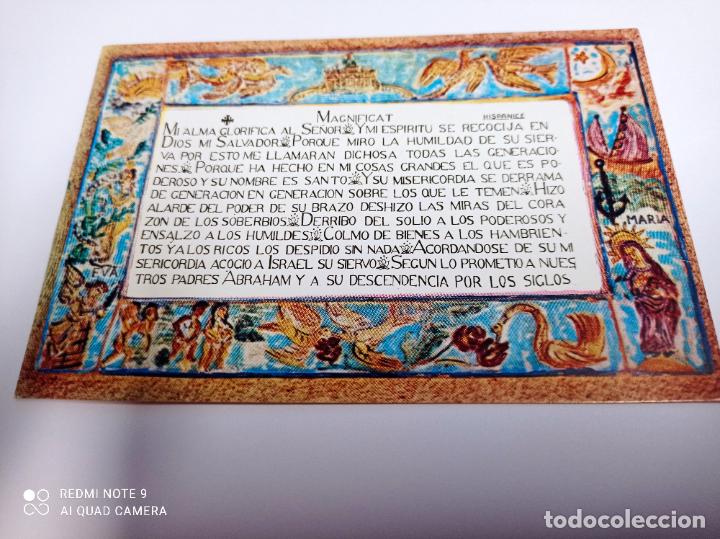 MAGNIFICAT HISPANICE
MI ALMA GLORIFICA AL SENOR Y MI ESPIRITU SE RECOCIJA EN
DIOS MI SALVADOR PORQUE MIRO LA HUMILDAD DE SU SIER-
VA POR ESTO ME LLAMARAN DICHOSA TODAS LAS GENERACIO-
NES. PORQUE HA HECHO EN MI COSAS GRANDES EL QUE ES PO-
DEROSO Y SU NOMBRE ES SANTO Y SU MISERICORDIA SE DERRAMA
DE GENERACION EN GENERACION SOBRE LOS QUE LE TEMEN HIZO
ALARDE DEL PODER DE SU BRAZO DESHIZO LAS MIRAS DEL CORA
ZON DE LOS SOBERBIOS DERRIBO DEL SOLIO A LOS PODEROSOS Y
ENSALZO A LOS HUMILDES COLMO DE BIENES A LOS HAMBRIEN-
TOS Y A LOS RICOS LOS DESPIDIO SIN NADA ACORDANDOSE DE SU MI
SERICORDIA ACOGIO A ISRAEL SU SIERVO SEGUN LO PROMETIO A NUES
TROS PADRES ABRAHAM Y A SU DESCENDENCIA POR LOS SIGLOS
EVA
MARIA
REDMI NOTE 9
AI QUAD CAMERA
todocoleccion.net